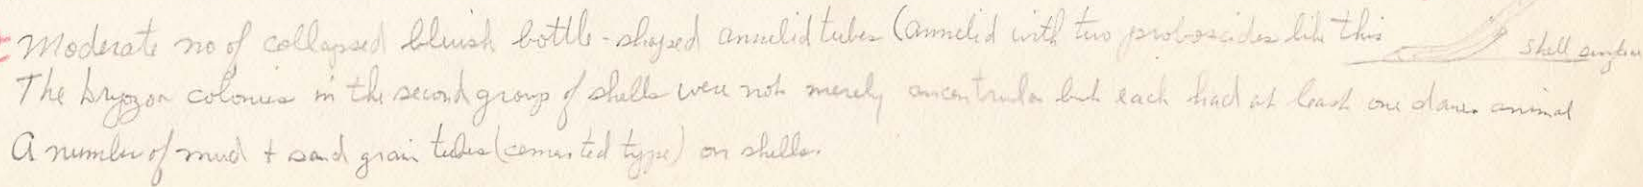 Moderate no of collapsed bluish bottle-shaped annelid tubes (annelid with two proboscides like this shell surface
The bryozoa colonies in the second group of shells were not merely ancestrula but each had at least one animal
A number of mud + sand grain tubes (cemented type) on shells.